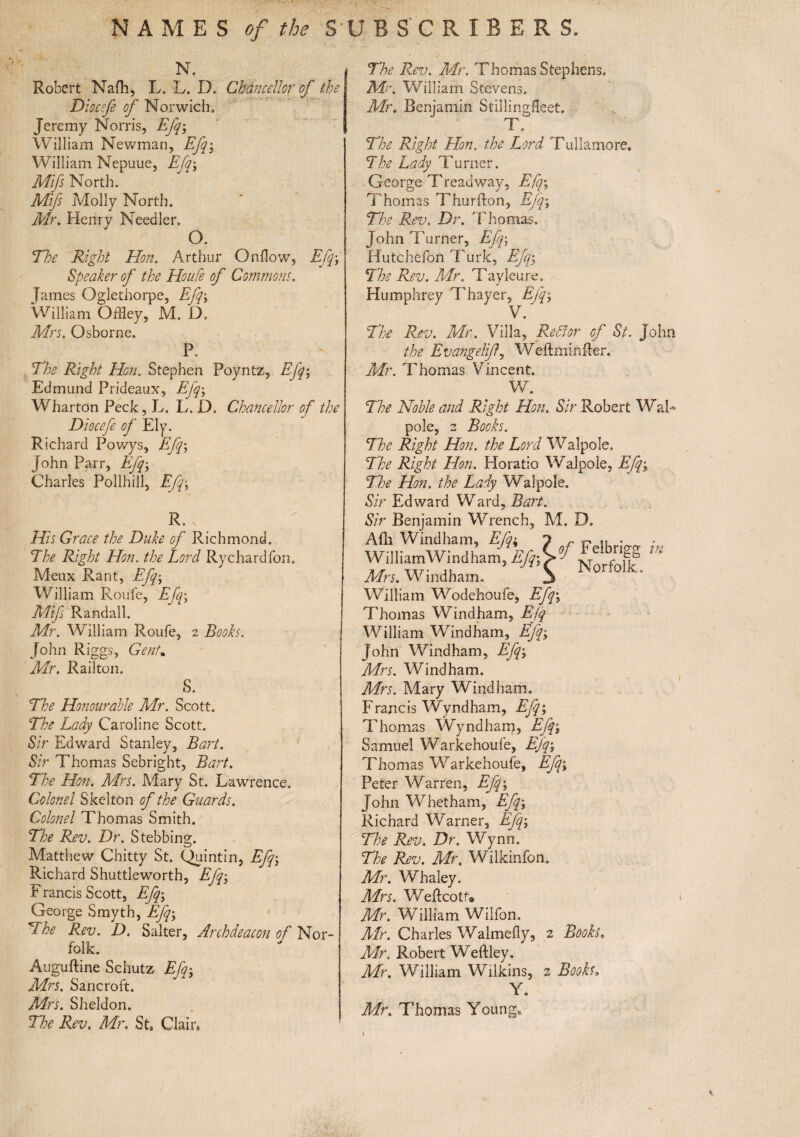 NAMES of the SUBSCRIBERS.
N.
Robert Naſh, L. L. D. Chancellor of the
Dioceſe of Norwich.
Jeremy Norris, Eſq;
William Newman, Eſq;
William Nepuue, Eſq;
Miſs North.
Miſs Molly North.
Mr. Henry Needler.
O.
The Right Hon. Arthur Onſlow, Eſq;
Speaker of the Houſe of Commons.
James Oglethorpe, Eſq;
William Offley, M. D.
Mrs. Osborne.
P.
The Right Hon. Stephen Poyntz, Eſq;
Edmund Prideaux, Eſq;
Wharton Peck, L. L. D. Chancellor of the
Dioceſe of Ely.
Richard Powys, Eſq;
John Parr, Eſq;
Charles Pollhill, Eſq;
R.
His Grace the Duke of Richmond.
The Right Hon. the Lord Rychardſon.
Meux Rant, Eſq;
William Rouſe, Eſq;
Miſs Randall.
Mr. William Rouſe, 2 Books.
John Riggs, Gent.
Mr. Railton.
S.
The Honourable Mr. Scott.
The Lady Caroline Scott.
Sir Edward Stanley, Bart.
Sir Thomas Sebright, Bart.
The Hon. Mrs. Mary St. Lawrence.
Colonel Skelton of the Guards.
Colonel Thomas Smith.
The Rev. Dr. Stebbing.
Matthew Chitty St. Quintin, Eſq;
Richard Shuttleworth, Eſq;
Francis Scott, Eſq;
George Smyth, Eſq;
The Rev. D. Salter, Archdeacon of Nor-
folk.
Auguſtine Schutz Eſq;
Mrs. Sancroft.
Mrs. Sheldon.
The Rev. Mr. St. Clair.
The Rev. Mr. Thomas Stephens.
Mr. William Stevens.
Mr. Benjamin Stillingfleet.
T.
The Right Hon. the Lord Tullamore.
The Lady Turner.
George Treadway, Eſq;
Thomas Thurſton, Eſq;
The Rev. Dr. Thomas.
John Turner, Eſq;
Hutcheſon Turk, Eſq;
The Rev. Mr. Tayleure.
Humphrey Thayer, Eſq;
V.
The Rev. Mr. Villa, Rector of St. John
the Evangeliſt, Weſtminſter.
Mr. Thomas Vincent.
W.
The Noble and Right Hon. Sir Robert Wal-
pole, 2 Books.
The Right Hon. the Lord Walpole.
The Right Hon. Horatio Walpole, Eſq;
The Hon. the Lady Walpole.
Sir Edward Ward, Bart.
Sir Benjamin Wrench, M. D.
Aſh Windham, Eſq;
William Windham, Eſq; } of Felbrigg in Norfolk.
Mrs. Windham.
William Wodehouſe, Eſq;
Thomas Windham, Eſq
William Windham, Eſq;
John Windham, Eſq;
Mrs. Windham.
Mrs. Mary Windham.
Francis Wyndham, Eſq;
Thomas Wyndham, Eſq;
Samuel Warkehouſe, Eſq;
Thomas Warkehouſe, Eſq;
Peter Warren, Eſq;
John Whetham, Eſq;
Richard Warner, Eſq;
The Rev. Dr. Wynn.
The Rev. Mr. Wilkinſon.
Mr. Whaley.
Mrs. Weſtcott.
Mr. William Wilſon.
Mr. Charles Walmeſly, 2 Books.
Mr. Robert Weſtley.
Mr. William Wilkins, 2 Books.
Y.
Mr. Thomas Young.